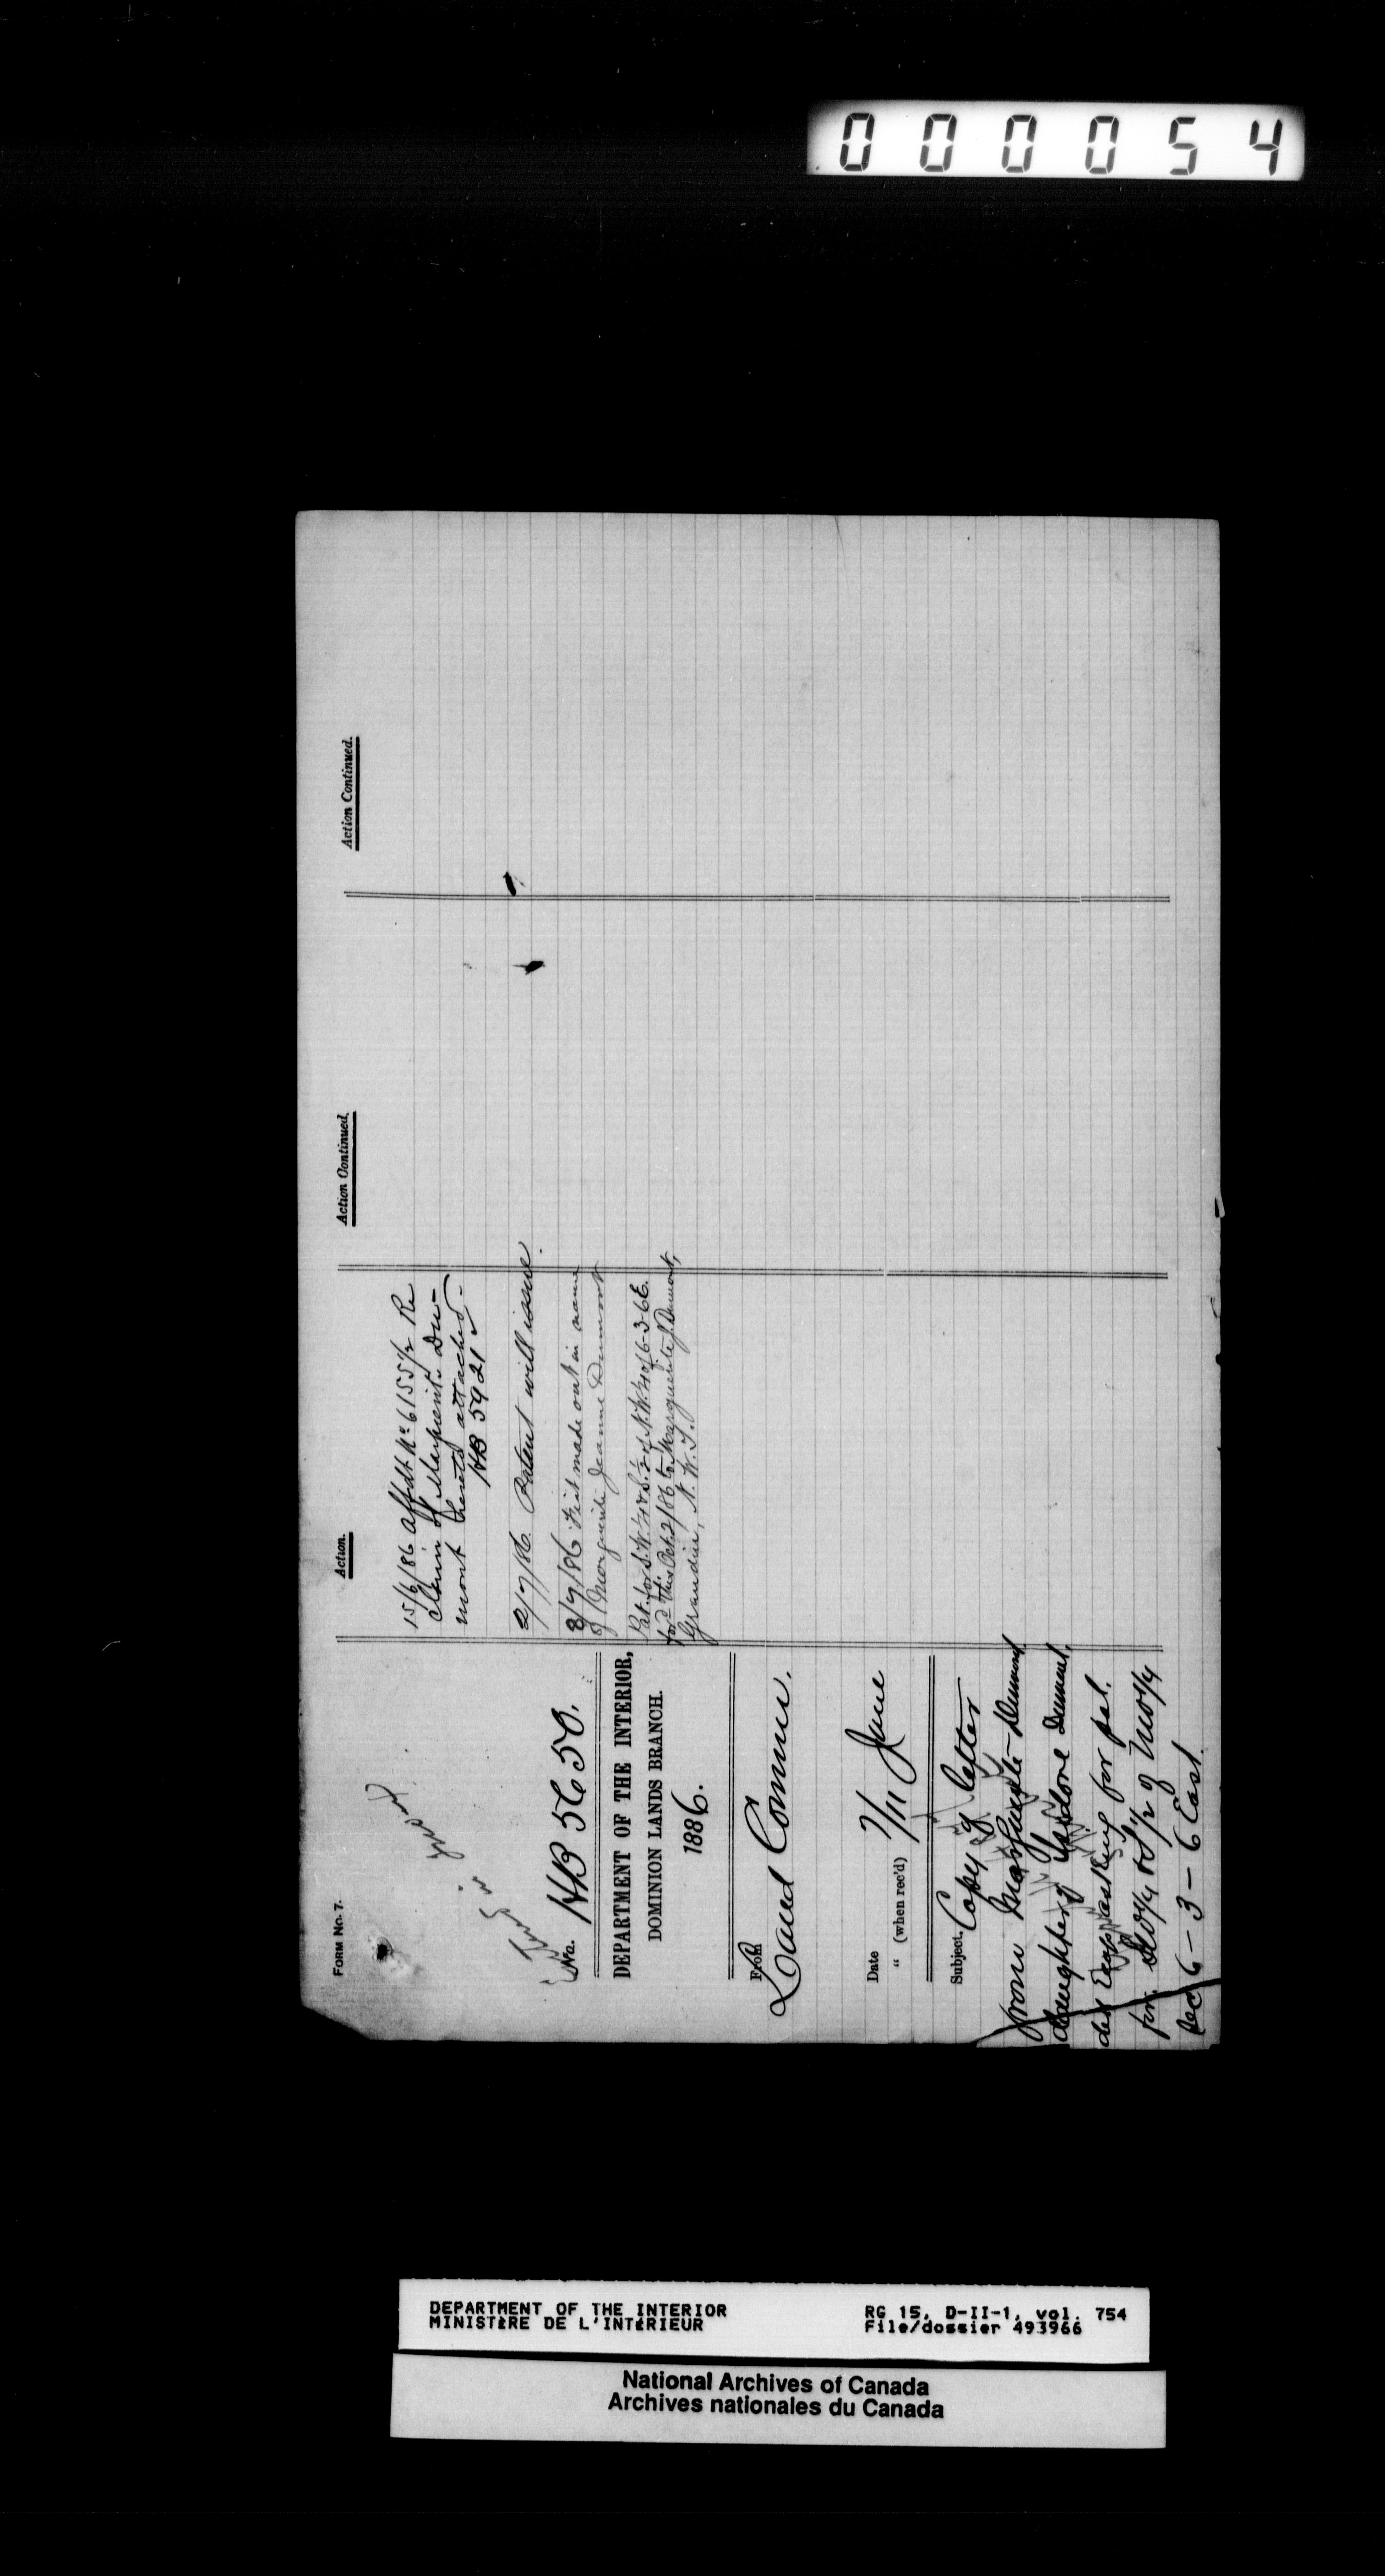 000054
FORM No. 7.
No. HB 5650.
DEPARTMENT OF THE INTERIOR,
DOMINION LANDS BRANCH.
1886.
From
Land Comnr.
Date 7/11 June
" (when rec'd)
Subject. Copy of letter
from Marguerite Dumont
daughter of Isidore Dumont,
asking for pat.
for SW1/4 & S1/2 of NW1/4
Sec 6-3-6 East
Action.
15/6/86 Affdt No 6155/2 Re
Claim of Marguerite Du-
mont hereto attached-
HB 5921 ✓
2/7/86. Patent will issue.
8/7/86 Fiat made out in name
of Marguerite Jeanne Dumont
Pat. for S.W.1/4 & S.1/2 of N.W.1/4 of 6-3-6E.
ford this Oct. 2/86 to Marguerite J. Dumont,
Grandin, N.W.T.
Action Continued.
Action Continued.
DEPARTMENT OF THE INTERIOR
MINISTÈRE DE L'INTÉRIEUR
RG 15, D-II-1, vol. 754
File/dossier 493966
National Archives of Canada
Archives nationales du Canada